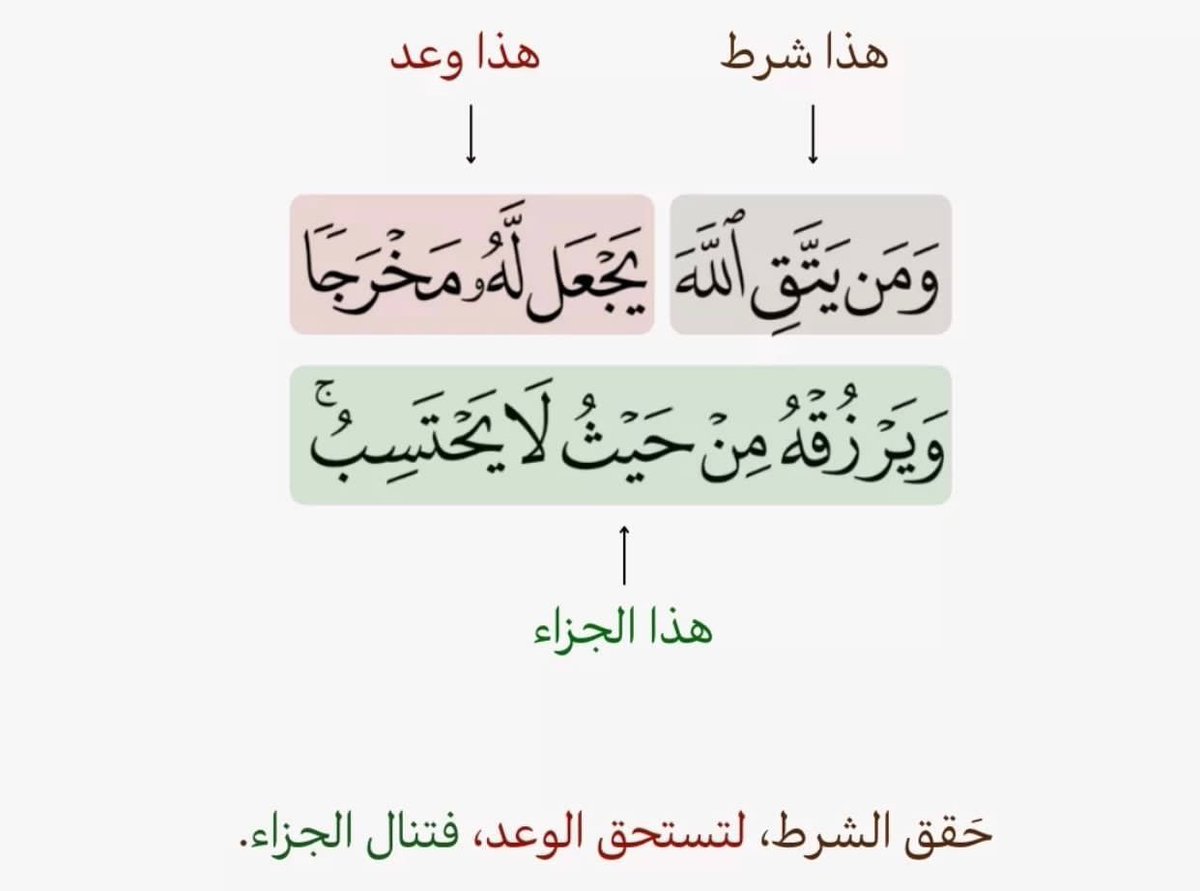 هذا شرط
هذا وعد
وَمَن يَتَّقِ ٱللَّهَ يَجۡعَل لَّهُۥ مَخۡرَجٗا
وَيَرۡزُقۡهُ مِنۡ حَيۡثُ لَا يَحۡتَسِبُۚ
هذا الجزاء
حَقق الشرط، لتستحق الوعد، فتنال الجزاء.